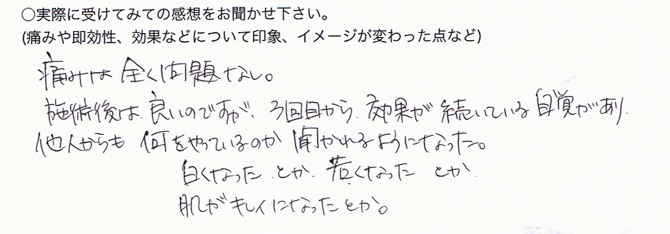 ○実際に受けてみての感想をお聞かせ下さい。
(痛みや即効性、効果などについて印象、イメージが変わった点など)
痛みは全く問題なし。
施術後は良いのですが、3回目から効果が続いている自覚があり
他人からも何をやっているのか聞かれるようになった。
白くなったとか、若くなったとか
肌がキレイになったとか。